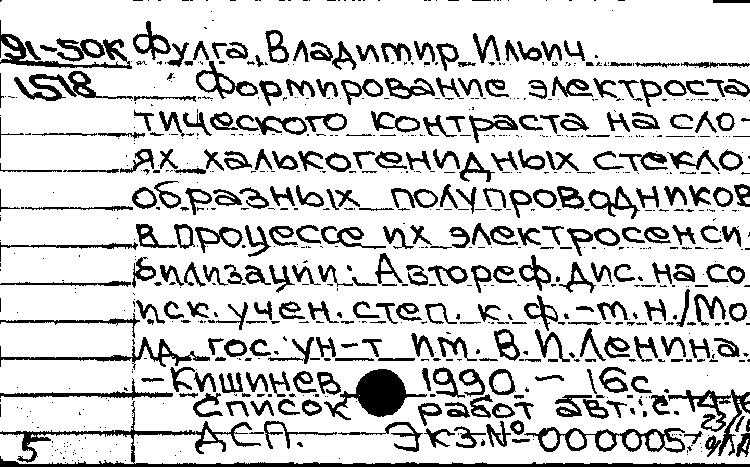 91-50К Фулга, Владимир Ильич.
1518 Формирование электроста
тического контраста на сло-
ях халькогенидных стекло
образных полупроводников
в процессе их электросенси
билизации: Автореф. дис. на со
иск. учен. степ. к. ф.-м. н. /Мо
лд. гос. ун-т им. В. И. Ленина.
- Кишинев, 1990. - 16с.
Список работ авт.: с. 14-16
5 ДСП. Экз. № 000005